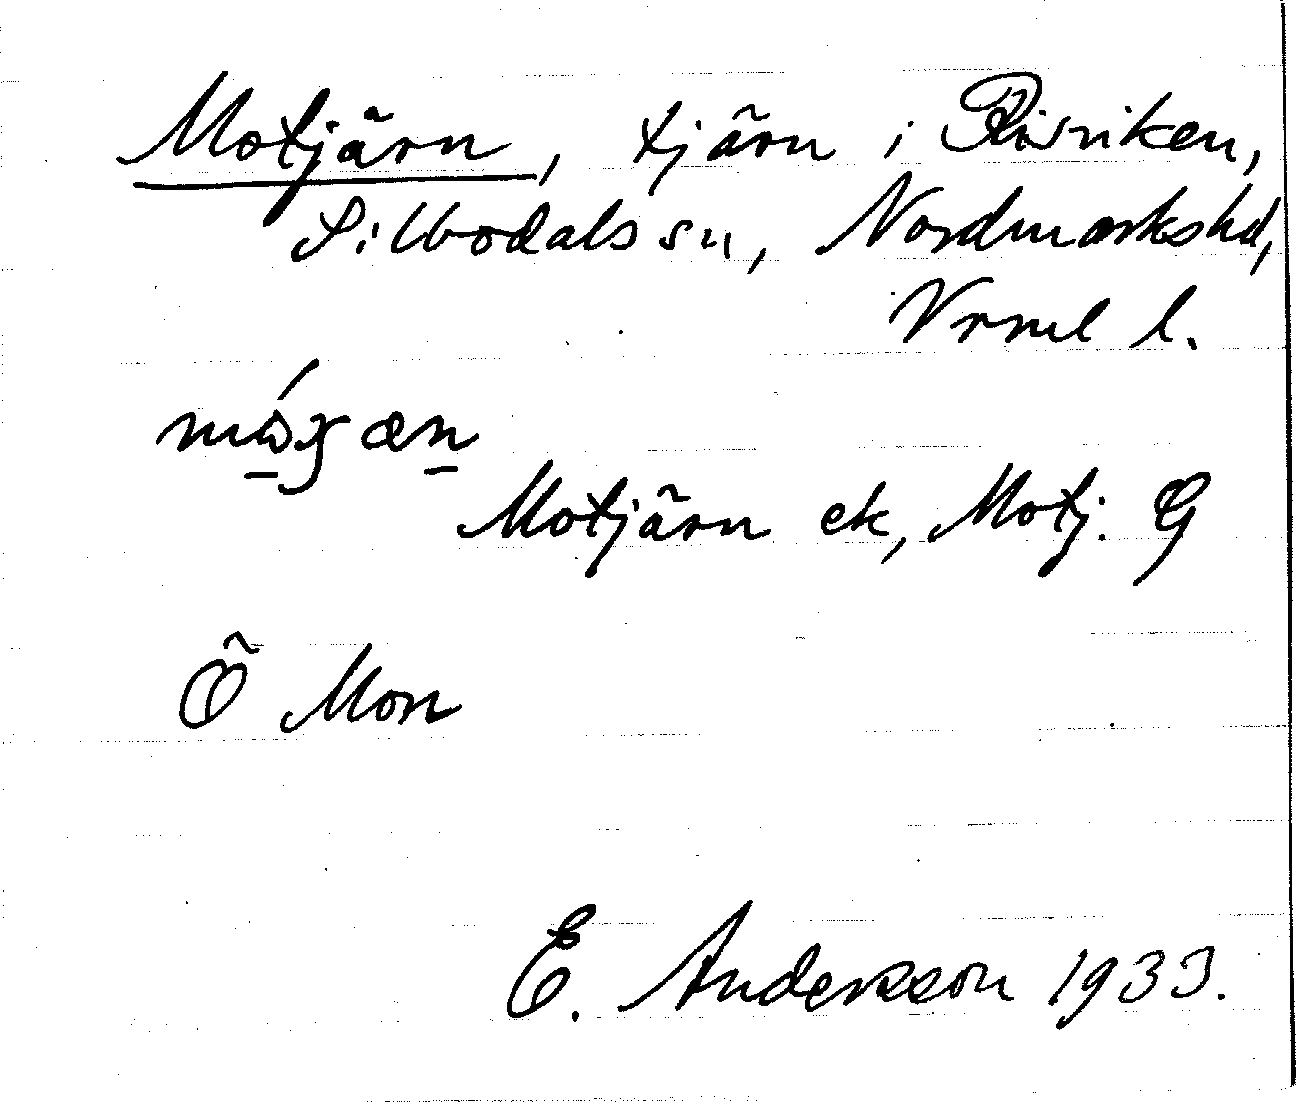 Motjärn, tjärn i Risviken,
Silbodals sn, Nordmarkshd,
Vrml l.
Motjärn ek, Motj. G
Ö Mon
E. Andersson 1933.